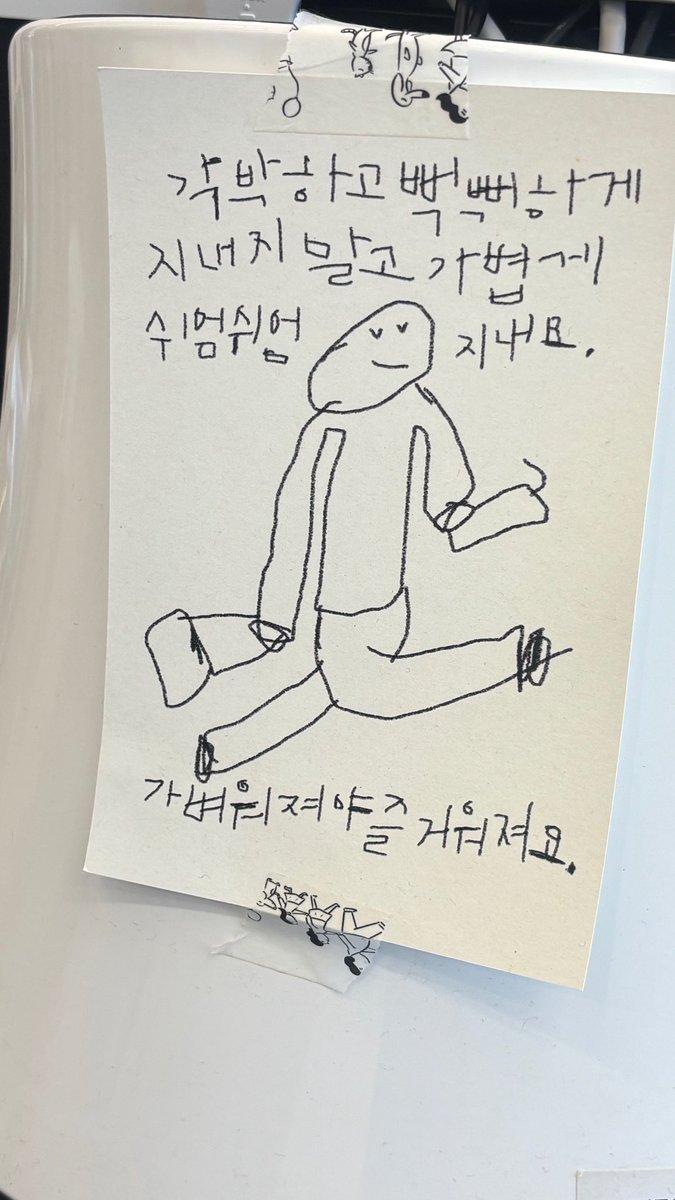 각박하고 뻑뻑하게
지내지 말고 가볍게
쉬엄쉬엄 지내요.
가벼워져야 즐거워져요.